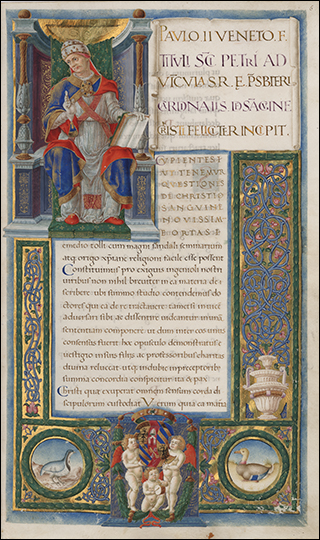 PAVLO II VENETO. F.
TITVLI SCI PETRI AD
VICVLA S.R.E. PSBITERI
CARDINALIS
FELICITER INCIPIT.
PIENTES
VT TENEMVR
QVESTIONES
DE CHRISTI
SANGVINE
NOVISSIM
E ORTAS E
emedio tolli cum magni scandali seminarium
atq origo xpiane religioni facile esse possent
Constituimus pro exiguis ingenioli nostri
uiribus non nihil breuiter in ea materia de
scribere ubi summo studio contendimus do
ctores qui ea de re tractauere tametsi inuice
aduersari sibi ac dissentire uideantur in unam
sententiam componere ut dum inter eos unus
consensus fuerit hoc opusculo demonstratus e
uestigio in suis filiis ac professoribus charitas
diuina reluceat utq indubie in preceptoribus
summa concordia conspicitur ita & pax
Christi que exuperat omnem sensum corda di
scipulorum custodiat Verum quia ea